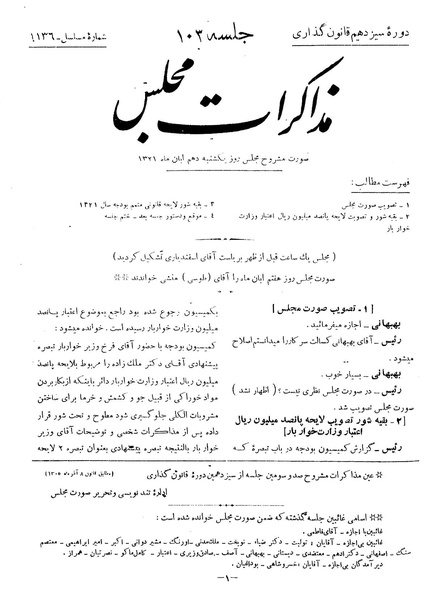 دورهٔ سیزدهم قانون گذاری
جلسه ۱۰۳
شمارهٔ مسلسل - ۱۱۳۶
مذاکرات مجلس
صورت مشروح مجلس روز یکشنبه دهم آبان ماه ۱۳۲۱
فهرست مطالب:
۱ - تصویب صورت مجلس
۲ - بقیه شور و تصویب لایحه پانصد میلیون ریال اعتبار وزارت
خوار بار
۳ - بقیه شور لایحه قانونی متمم بودجه سال ۱۳۲۱
۴ - موقع و دستور جلسه بعد - ختم جلسه
( مجلس یك ساعت قبل از ظهر بریاست آقای اسفندیاری تشکیل گردید )
صورت مجلس روز هفتم آبان ماه را آقای ( طوسی ) منشی خواندند **
[ ۱ - تصویب صورت مجلس ]
بهبهانی - اجازه میفرمائید.
رئیس - آقای بهبهانی کسالت سرکار را میدانستم اصلاح
میشود .
بهبهانی - بسیار خوب .
رئیس - در صورت مجلس نظری نیست؟ ( اظهار نشد )
صورت مجلس تصویب شد .
[۲ - بقیه شور و تصویب لایحه پانصد میلیون ریال
اعتبار وزارت خوار بار]
رئیس - گزارش کمیسیون بودجه در باب تبصرهٔ که
بکمیسیون رجوع شده بود راجع بموضوع اعتبار پانصد
میلیون وزارت خواربار رسیده است . خوانده میشود :
کمیسیون بودجه با حضور آقای فرخ وزیر خواربار تبصره
پیشنهادی آقای دکتر ملك زاده را مربوط بلایحه پانصد
میلیون ریال اعتبار وزارت خواربار دائر باینکه از بکار بردن
مواد خوراکی از قبیل جو و کشمش و خرما برای ساختن
مشروبات الکلی جلوگیری شود مطرح و تحت شور قرار
داده پس از مذاکرات شخصی و توضیحات آقای وزیر
خوار بار بالنتیجه تبصره پیشنهادی بعنوان تبصره ۲ لایحه
* عین مذاکرات مشروح صد و سومین جلسه از سیزدهمین دورهٔ قانون گذاری
(مطابق قانون ۸ آذر ماه ۱۳۰۵)
ادارهٔ تند نویسی و تحریر صورت مجلس
** اسامی غائبین جلسه گذشته که ضمن صورت مجلس خوانده شده است :
غائبین با اجازه - آقای فاطمی .
غائبین بی اجازه - آقایان : تولیت - دکتر ضیاء - نوبخت - ملك مدنی - اورنگ - مشیر دوانی - اکبر - امیر ابراهیمی - معتصم
سنگ - اصفهانی - دکتر ادهم - معتضدی - دبستانی - بهبهانی - آصف - صادق وزیری - اعتبار - کامل ماکو - نصرتیان - همراز .
دیر آمدگان بی اجازه - آقایان : خسروشاهی - بوداغیان .
-۱-